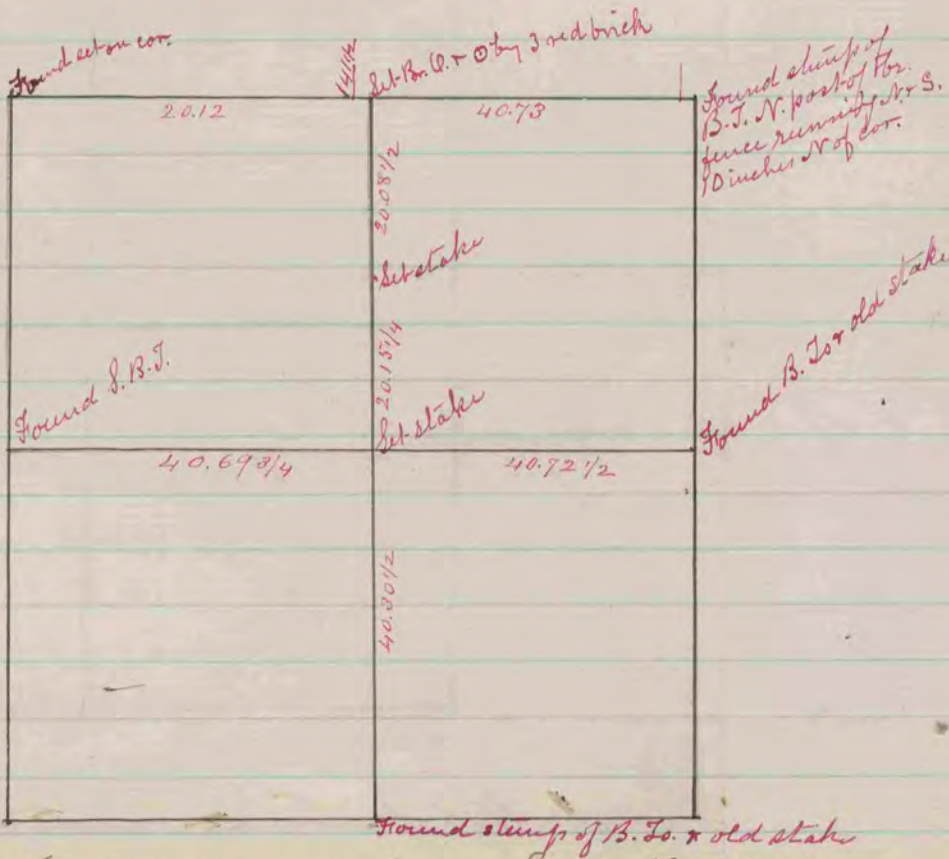 Found set on cor.
14 1/2
Set Br. Q. & O by 3 red brick
Found stump of
B. T. N. post of
fence running N. & S.
10 inches N of cor.
20.12
40.73
20.08 1/2
Set stake
20.15 1/4
Found S. B. T.
Set stake
Found B. To & old stake
40.69 3/4
40.72 1/2
40.30 1/2
Found stump of B. To. & old stake